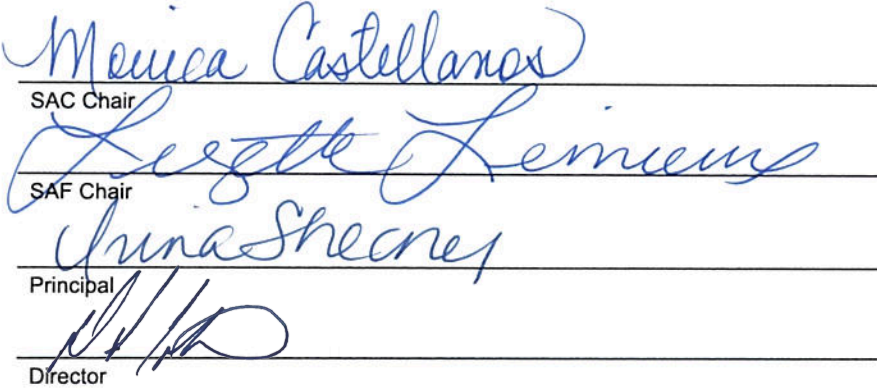 Monica Castellanos
SAC Chair
Lizette Lemieux
SAF Chair
Irina Shearer
Principal
Director